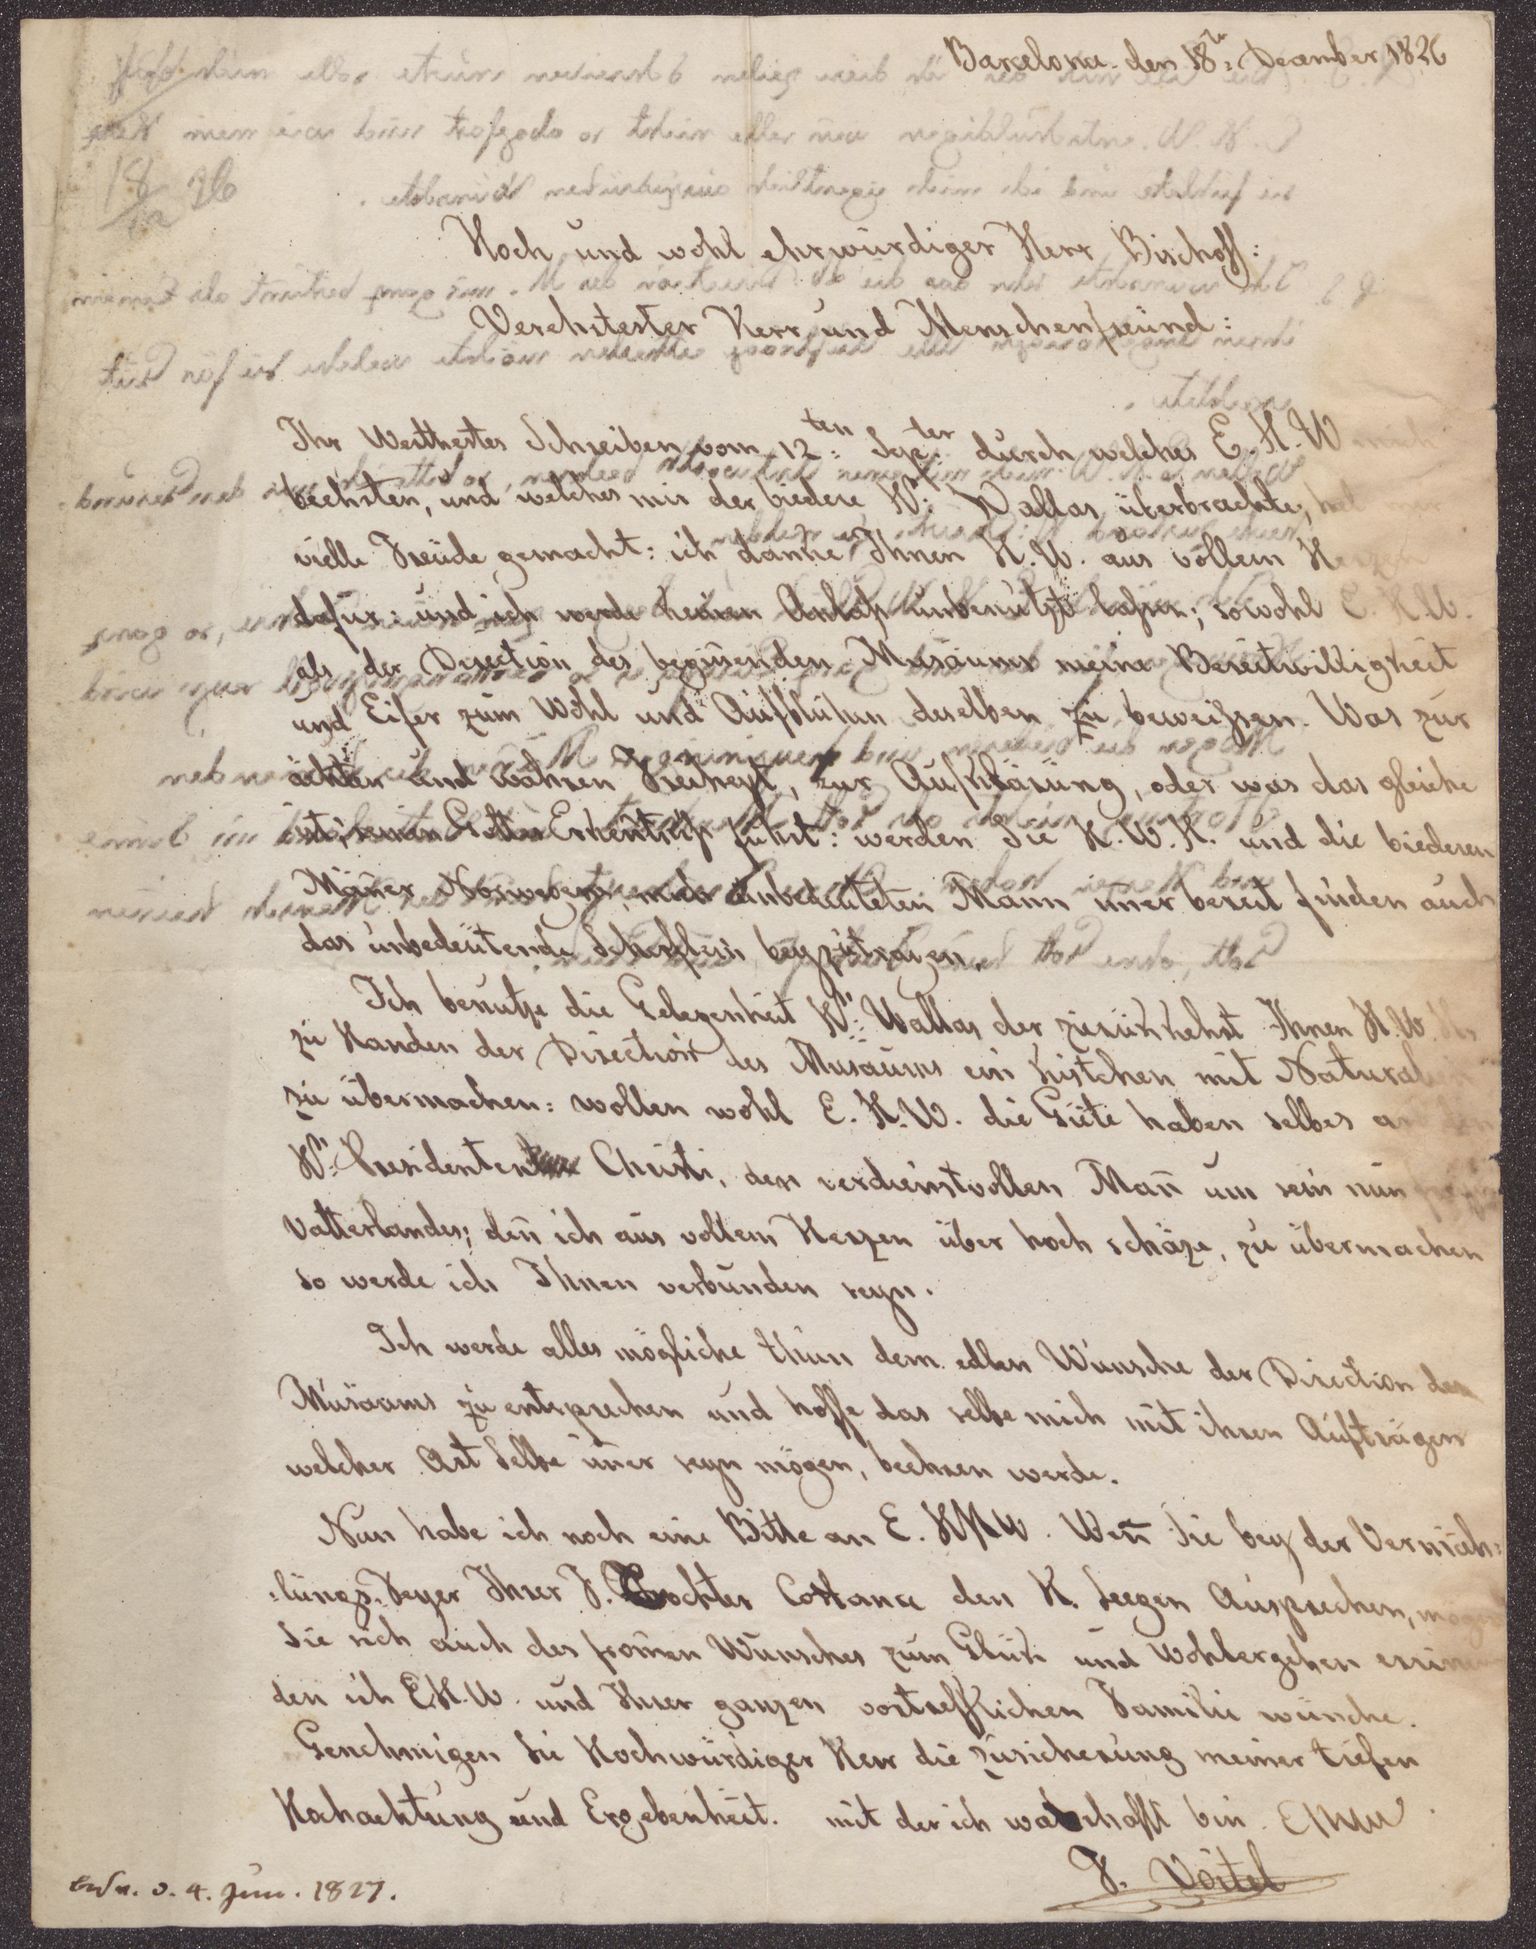 Barcelona den 18ter December 1826
18/12 26
Hoch und wohl ehrwürdiger Herr Bischoff:
Verehrtester Herr und Menschenfreünd:
Ihr Werthestes Schreiben vom 12ten: Septer: durch welches E. H. W mich
beehrten, und welches mir der biedere Hr: Wallas überbrachte, hat mir
vielle Freüde gemacht: ich danke Ihnen H. W. aus vollem Herzen
dafür: und ich werde keinen Anlaß unbenützt laßen; sowohl E. H. W.
als der Direction des begiñenden Musäums meine Bereitwilligkeit
und Eifer zum Wohl und Aufblühen deselben zu beweißen. Was zur
ächten und wahren Freiheit, zur Aufklärung, oder was das gleiche
ist; führt: werden Sie H. W. H. und die biederen
Mäñer Norwegens, unbedeuteten Mann im̃er bereit finden auch
das unbedeutende Scherflein beyzutragen.
Ich benutze die Gelegenheit Hr: Wallas der zurükkehrt Ihnen H. W. H.
zu Handen der Direction des Musäums ein Kistchen mit Naturalien
zu übermachen: wollen wohl E. H. W. die Güte haben selbes an den
Hr. Presidenten Christi, den verdienstvollen Mañ um sein nun
Vatterlandes; deñ ich aus vollem Herzen über hoch schäze, zu übermachen
so werde ich Ihnen verbunden seyn.
Ich werde alles mögliche thun dem edlen Wunsche der Direction des
Musäums zu entsprechen und hoffe das selbe mich mit ihren Aufträgen
welcher Art Selbe im̃er seyn mögen, beehren werde.
Nun habe ich noch eine Bitte an E. H W. Weñ Sie bey der Vermäh:
:lungs. Feyer Ihrer F. Tochter Costance den H. Seegen Aussprechen, mögen
Sie sich auch des from̃en Wunsches zum Glük und Wohlergehen
den ich E H. W. und Ihrer ganzen vortrefflichen Familie wünsche.
Genehmigen Sie Hochwürdiger Herr die zusicherung meiner tiefen
Hochachtung und Ergebenheit. mit der ich wahrhaft bin. E H W
F. Voitel
4. Jun. 1827.